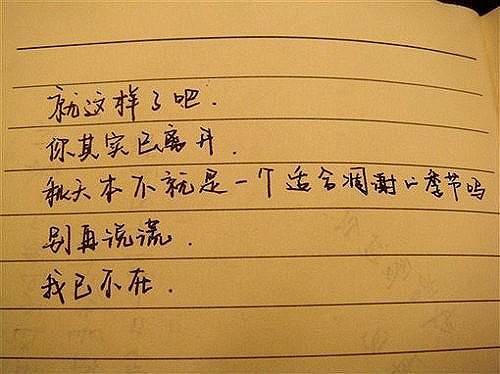 就这样了吧.
你其实已离开.
秋天本不就是一个适合凋谢的季节吗
别再说谎.
我已不在.